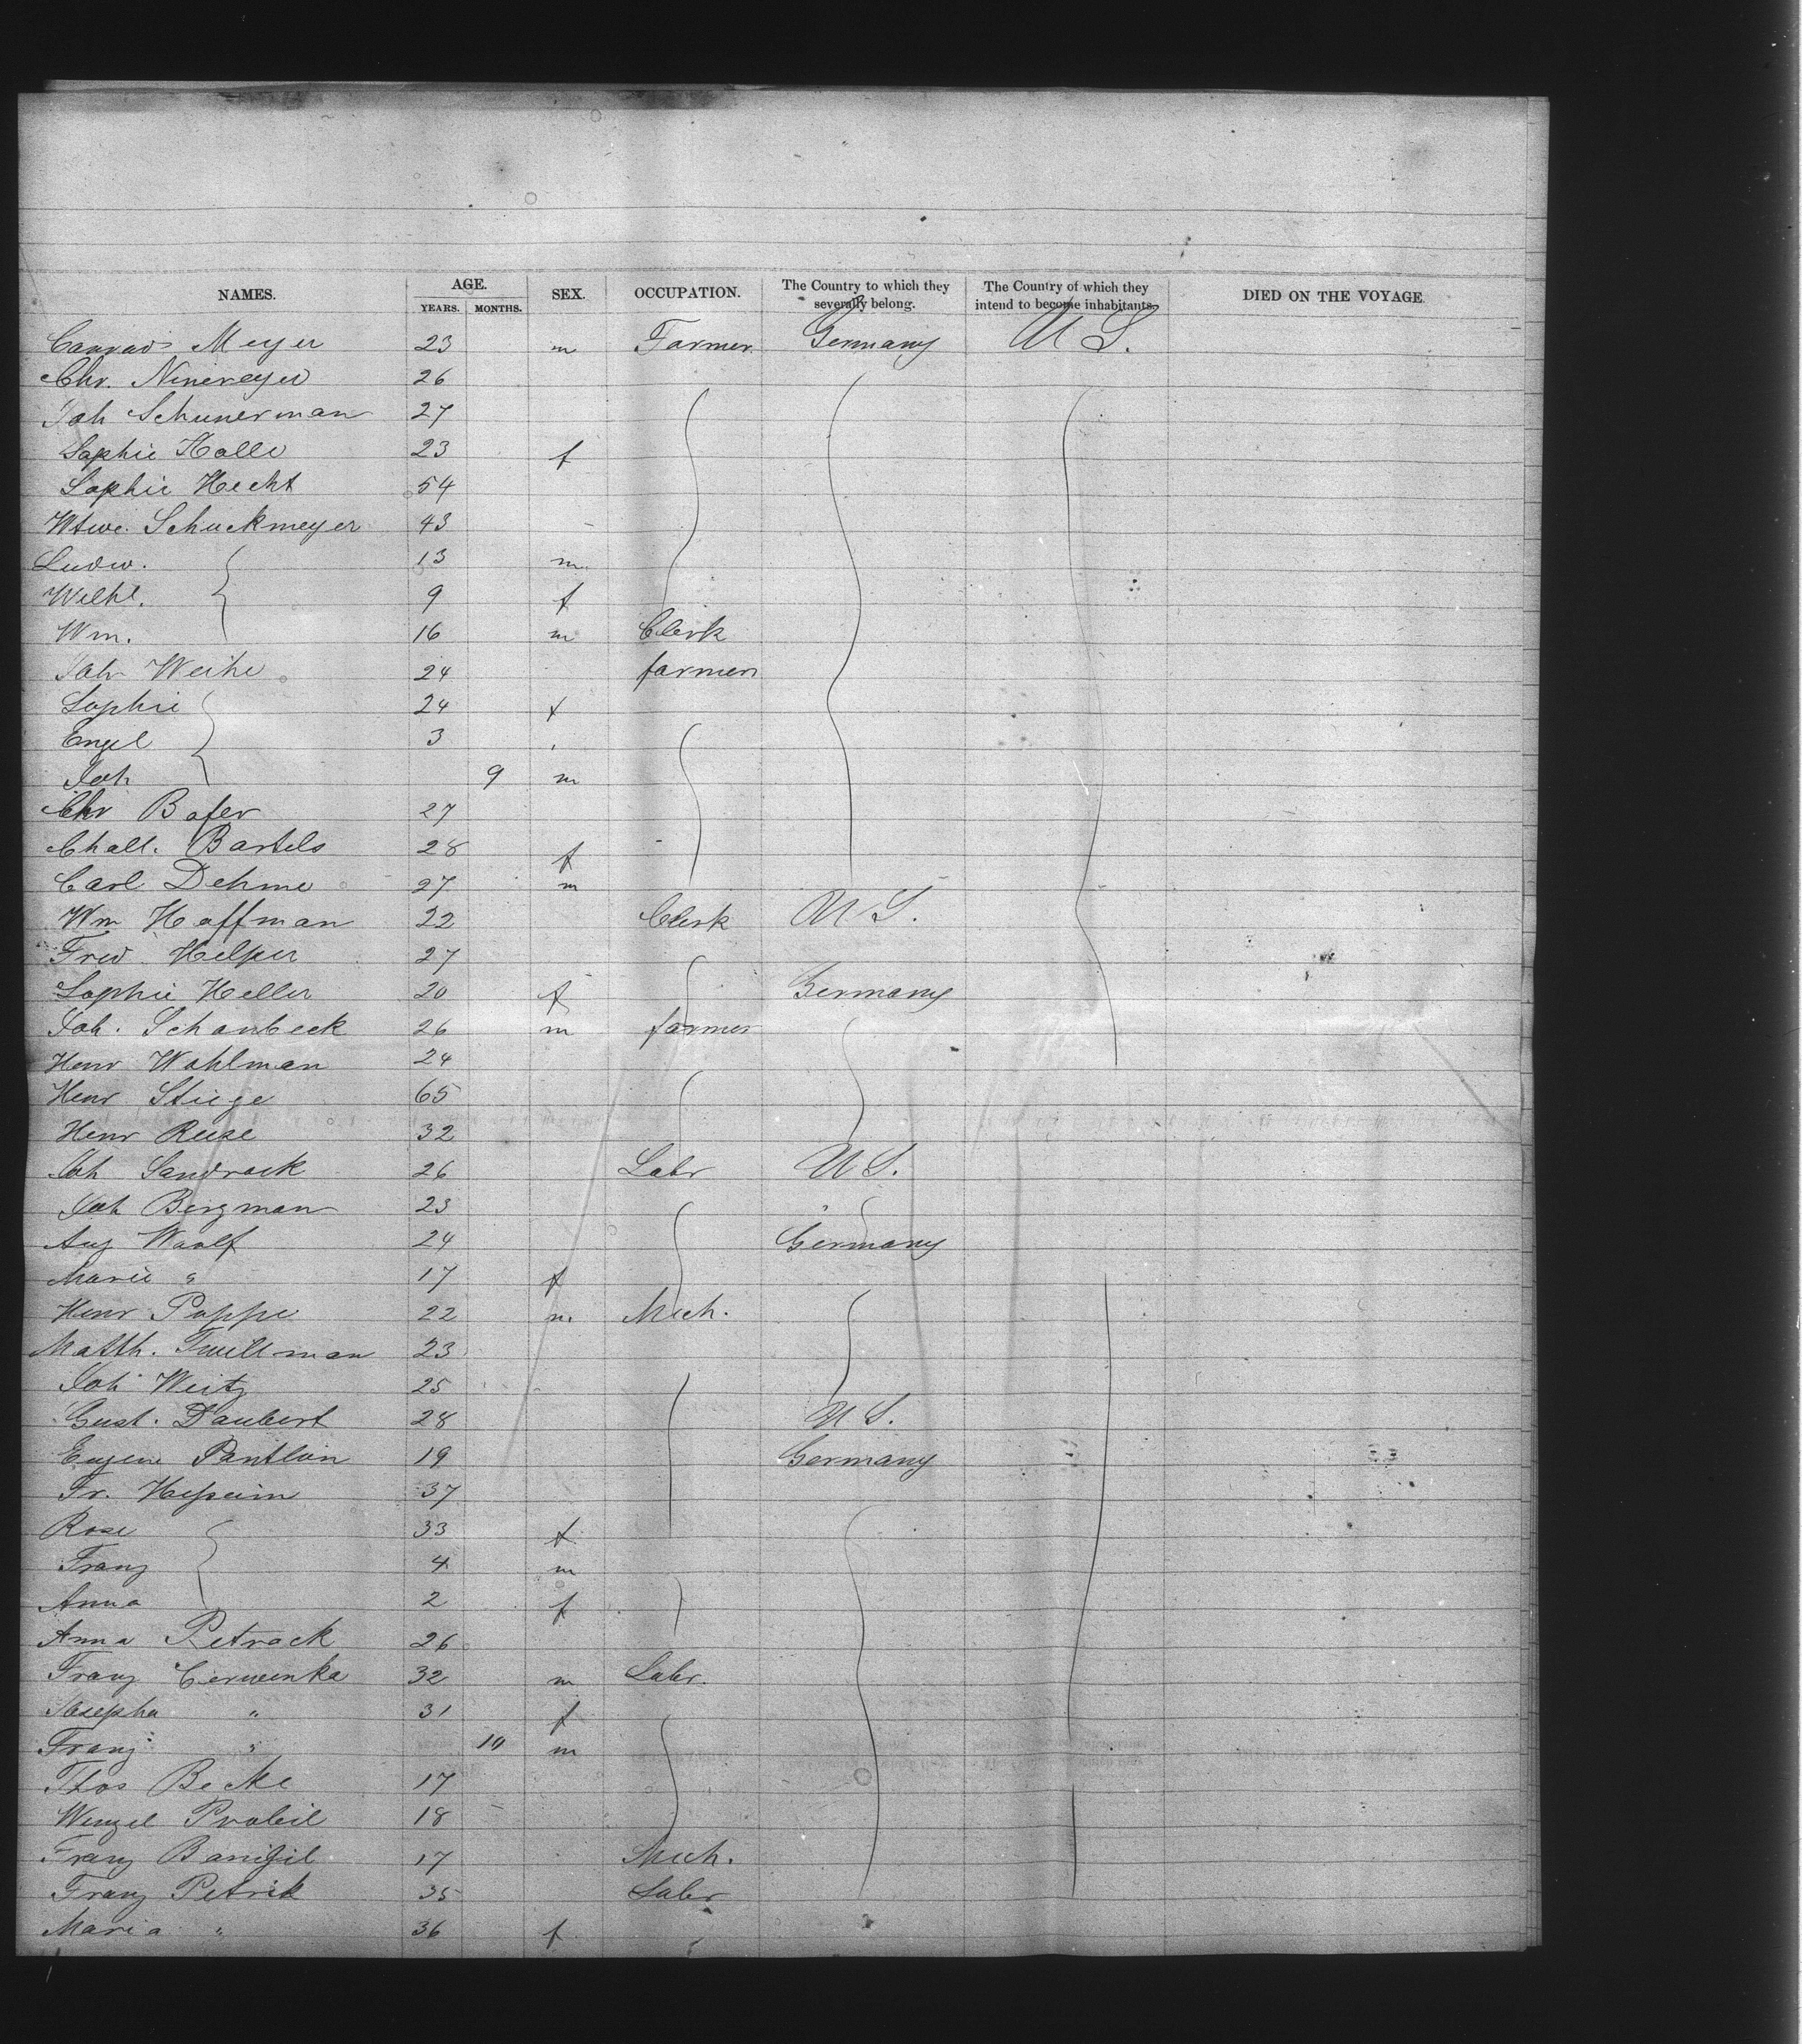 NAMES. AGE. SEX. OCCUPATION. The Country to which they severally belong. The Country of which they intend to become inhabitants. DIED ON THE VOYAGE.
YEARS. MONTHS.
Conrad Meyer 23 m Farmer Germany U S.
Chr. Ninemeyer 26
Joh Schunerman 27
Sophie Halle 23 f
Sophie Hecht 54
Wtwe. Schuckmeyer 43
Ludw. 13 m.
Wilhl. 9 f
Wm. 16 m Clerk
Joh Weihe 24 farmer
Sophie 24 f
Engel 3
Joh 9 m
Chr Bafer 27
Chall. Bartels 28 f
Carl Dehme 27 m
Wm Hoffman 22 Clerk U S.
Fred Helper 27
Sophie Heller 20 f Germany
Joh. Schonbeck 26 m farmer
Henr Wohlman 24
Henr Stiege 65
Henr Reese 32
Joh Sandrock 26 Labr U S.
Joh Bergman 23
Aug Woolf 24 Germany
Marie " 17 f
Henr Poppe 22 m. Mich.
Matth. Twillman 23
Joh Weitz 25
Gust. Daubert 28 U S.
Eugene Pantlon 19 Germany
Fr. 37
Rose 33 f
Franz 4 m
Anna 2 f
Anna Petrack 26
Franz Cerwenka 32 m Labr.
Josepha " 31 f
Franz " 10 m
Thos Becke 17
Wenzel Probeil 18
Franz 17 Mich.
Franz Petrik 35 Labr
Maria " 36 f